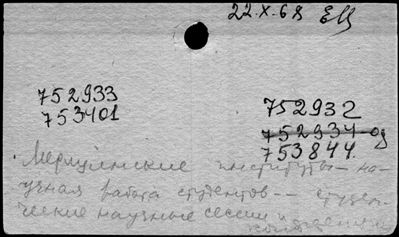 22.X.68
752933
753401
752932
752934
753844
Медицинские институты – на-
учная работа студентов –– студен-
ческие научные сессии и